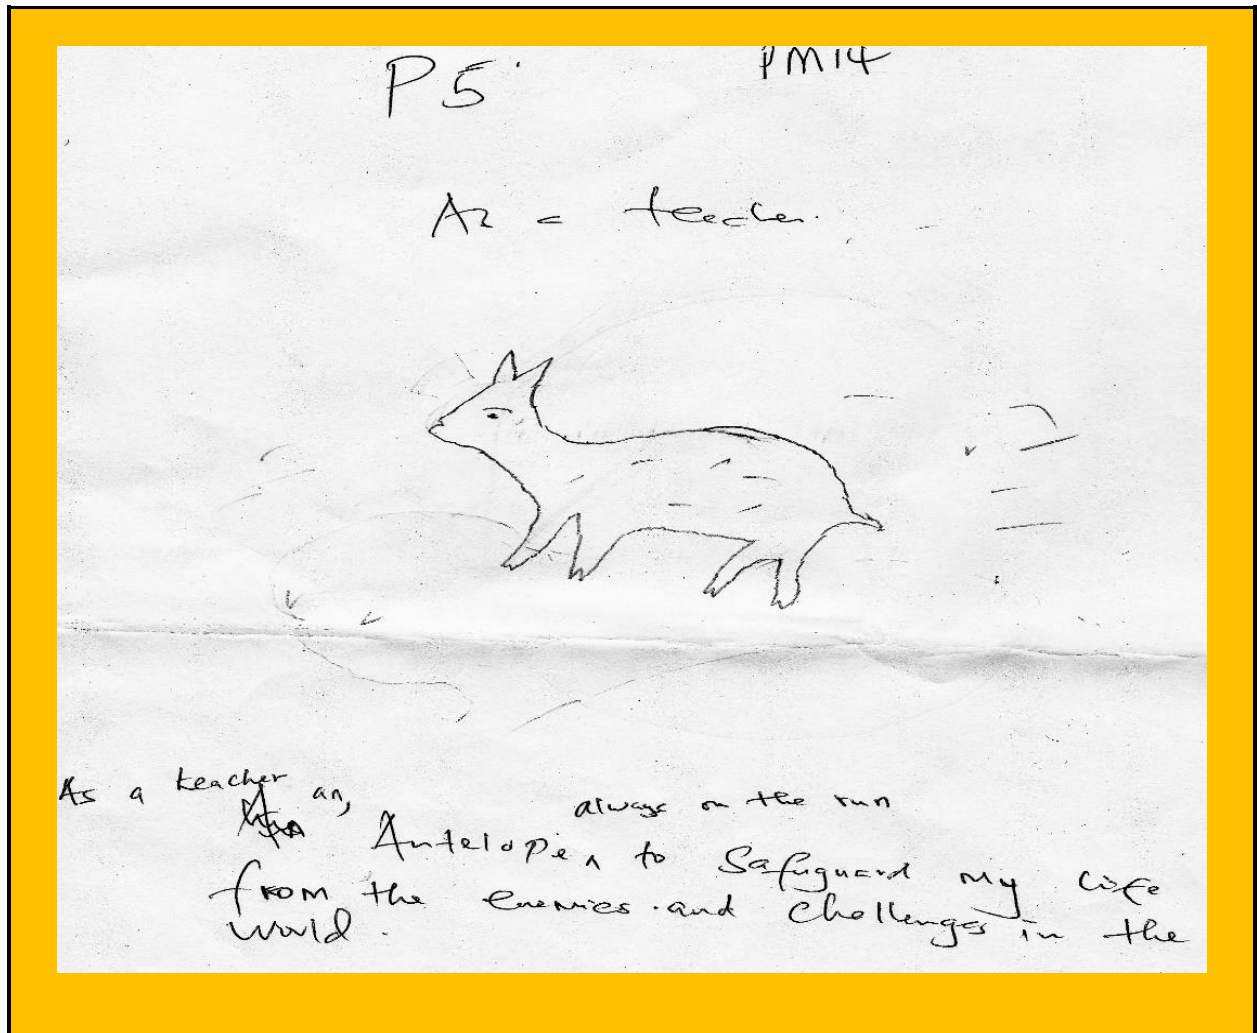 P5 PM14
As = teacher.
As a teacher an, always on the run
Antelope, to Safuguard my life
from the enemies and challenges in the
world.